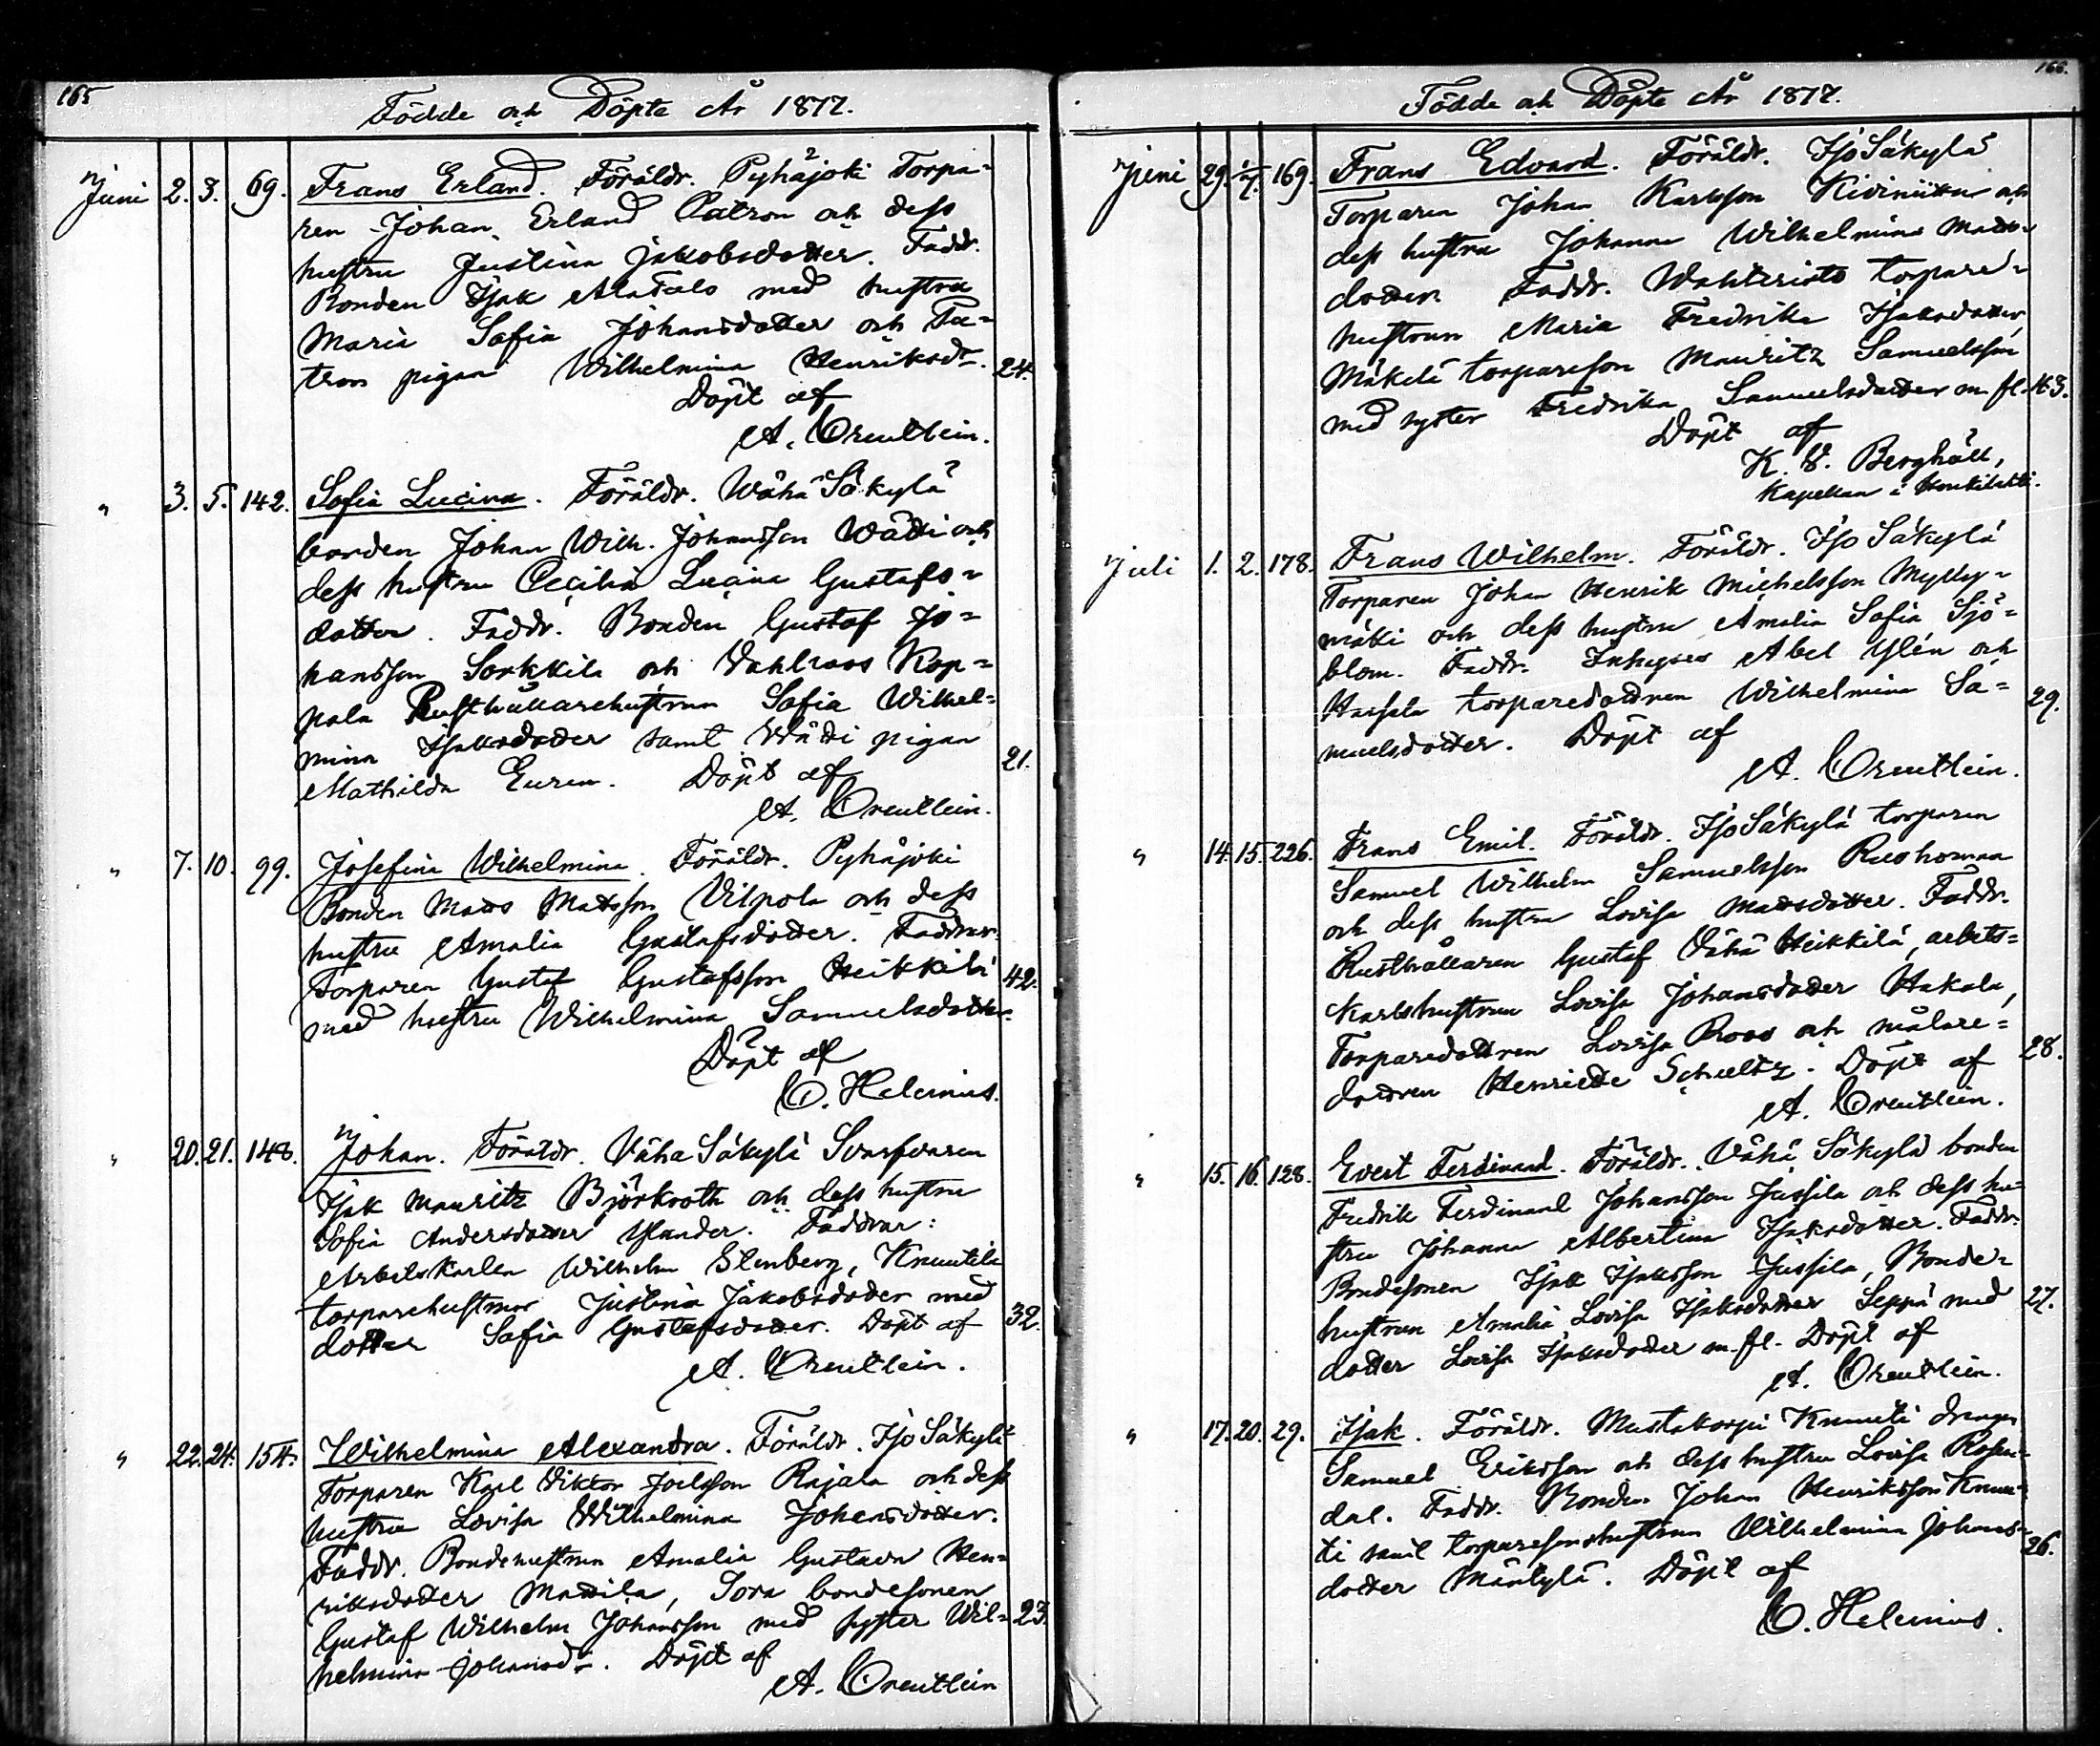 165
Födde och Döpte År 1877.
Juni 2. 3. 69. Frans Erland. Föräldr. Pyhäjoki Torpa=
ren Johan Erland Patron och dess
hustru Justina Jakobsdotter. Faddr.
Bonden Isak AlaTalo med hustru
Maria Sofia Johansdotter och Pa=
tron pigan Wilhelmina Henriksdr. 24.
Döpt af
A. Oreutlein.
" 3. 5. 142. Sofia Lucina. Föräldr. Wähä Säkylä
bonden Johan Wilh. Johansson Wätti och
dess hustru Cecilia Lucina Gustafs=
dotter. Faddr. Bonden Gustaf Jo=
hansson Sorkkila och Vahlroos Kop=
pala Rusthållarehustrun Sofia Wilhel=
mina Isaksdotter samt Wätti pigan
Mathilda Euren. Döpt af 21.
A. Oreutlein.
" 7. 10. 99. Josefina Wilhelmina. Föräldr. Pyhäjoki
Bonden Matts Mattsson Vilpola och dess
hustru Amalia Gustafsdotter. Faddrar.
Torparen Gustaf Gustafsson Heikkilä 42.
med hustru Wilhelmina Samuelsdotter.
Döpt af
O. Helenius.
" 20. 21. 148. Johan. Föräldr. Vähä Säkylä Svarfvaren
Isak Mauritz Björkroth och dess hustru
Sofia Andersdotter Ylander. Faddrar:
Arbetskarlen Wilhelm Stenberg, Knuutila
torparehustrun Justina Jakobsdotter med 32.
dotter Sofia Gustafsdotter. Döpt af
A. Oreutlein.
" 22. 24. 154. Wilhelmina Alexandra. Föräldr. Iso Säkylä
Torparen Karl Viktor Joelsson Rajala och dess
hustru Lovisa Wilhelmina Johansdotter.
Faddr. Bondehustrun Amalia Gustava Hen=
riksdotter Mattila, Sora bondesonen
Gustaf Wilhelm Johansson med syster Wil= 23.
helmina Johansdr. Döpt af
A. Oreutlein
166.
Födde och Döpte År 1877.
Juni 29. 1/7. 169. Frans Edvard. Föräldr. Iso Säkylä
Torparen Johan Karlsson Kiviniittu och
dess hustru Johanna Wilhelmina Matts=
dotter. Faddr. Wahteristo torpare=
hustrun Maria Fredrika Isaksdotter,
Mäkelä torpareson Mauritz Samuelsson
med syster Fredrika Samuelsdotter m. fl. 43.
Döpt af
K. V. Berghäll,
Kapellan i Honkilahti.
Juli 1. 2. 178. Frans Wilhelm. Föräldr. Iso Säkylä
Torparen Johan Henrik Michelsson Mylly=
mäki och dess hustru Amalia Sofia Sjö=
blom. Faddr. Inhyses Abel Ylén och
Hassala torparedottren Wilhelmina Sa= 29.
muelsdotter. Döpt af
A. Oreutlein.
" 14. 15. 226. Frans Emil. Föräldr. Iso Säkylä torparen
Samuel Wilhelm Samuelsson Ruohomaa
och dess hustru Lovisa Mattsdotter. Faddr.
Rusthållaren Gustaf Vähä Heikkilä, arbets=
karlshustrun Lovisa Johansdotter Hakala,
Torparedottren Lovisa Roos och målare= 28.
dottren Henriette Schultz. Döpt af
A. Oreutlein.
" 15. 16. 128. Evert Ferdinand. Föräldr. Vähä Säkylä bonden
Fredrik Ferdinand Johansson Jussila och dess hu=
stru Johanna Albertina Isaksdotter. Faddr.
Bondesonen Isak Isaksson Jussila, Bonde=
hustrun Amalia Lovisa Isaksdotter Seppä med 27.
dotter Lovisa Isaksdotter m. fl. Döpt af
A. Oreutlein.
" 17. 20. 29. Isak. Föräldr. Mustakorpi Knuuti drengen
Samuel Eriksson och dess hustru Lovisa Rosen=
dal. Faddr. Bonden Johan Henriksson Knuu=
ti samt torparesonshustrun Wilhelmina Johans= 26.
dotter Mäntylä. Döpt af
O. Helenius.